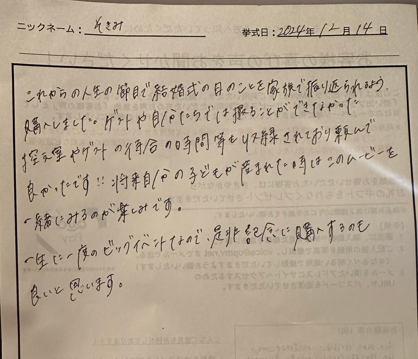 ニックネーム： そきみ 挙式日：2024年 12月 14日
これからの人生の節目で結婚式の日のことを家族で振り返られるよう、
購入しました。ゲストや自分たちでは撮ることができなかった
控え室やゲストの待合の時間等も収録されており頼んで
良かったです!! 将来自分の子どもが産まれた時はこのムービーを
一緒にみるのが楽しみです。
一生に一度のビッグイベントなので、是非記念に購入するのも
良いと思います。